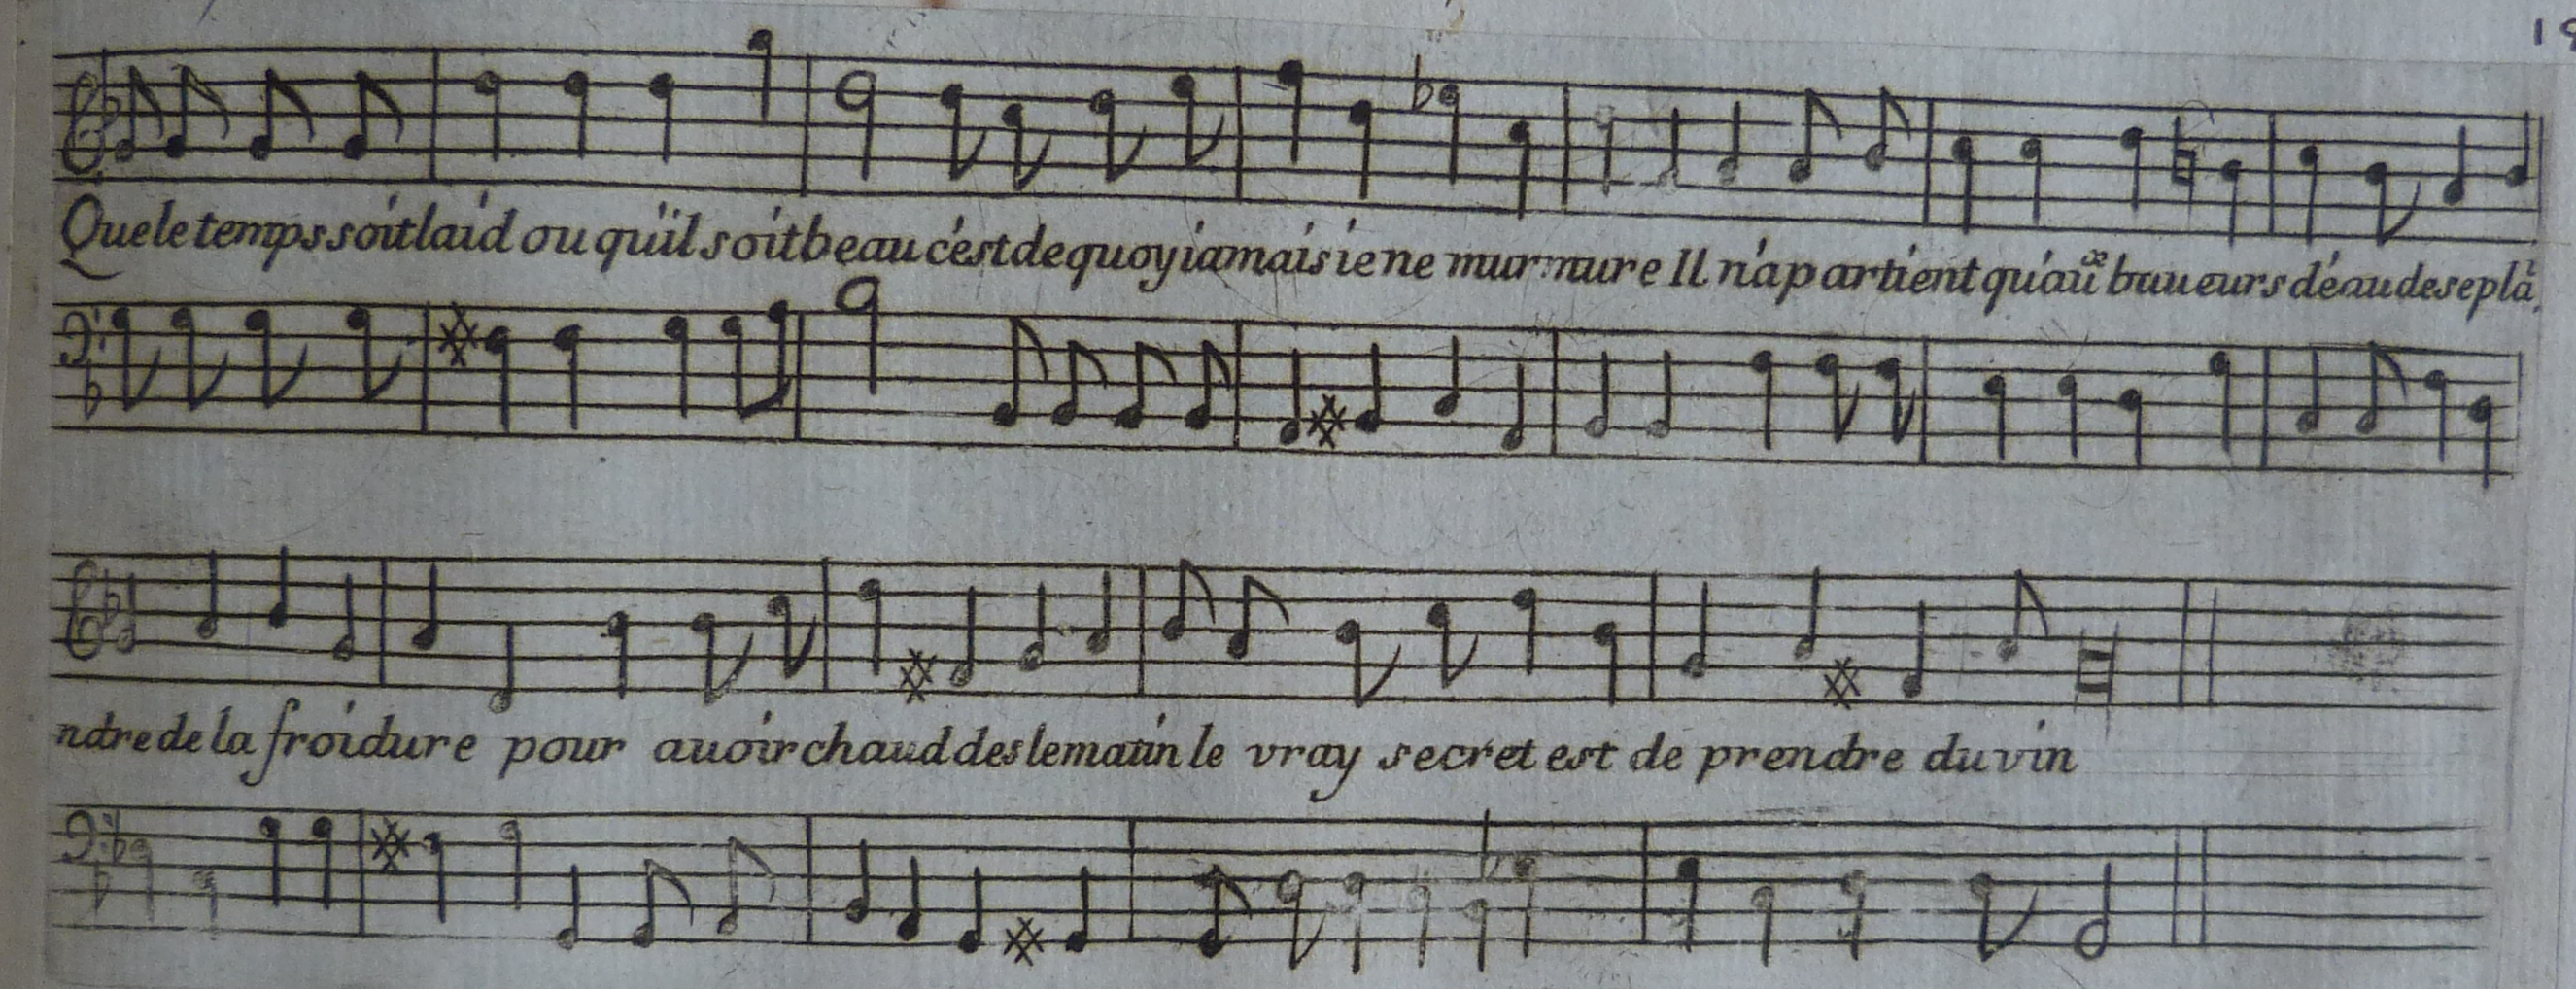 Que le temps soit laid ou qu'il soit beau c'est de quoy iamais ie ne murmure Il n'apartient qu'au baueurs d'eau de se pla
ndre de la froidure pour auoir chaud des le matin le vray secret est de prendre du vin